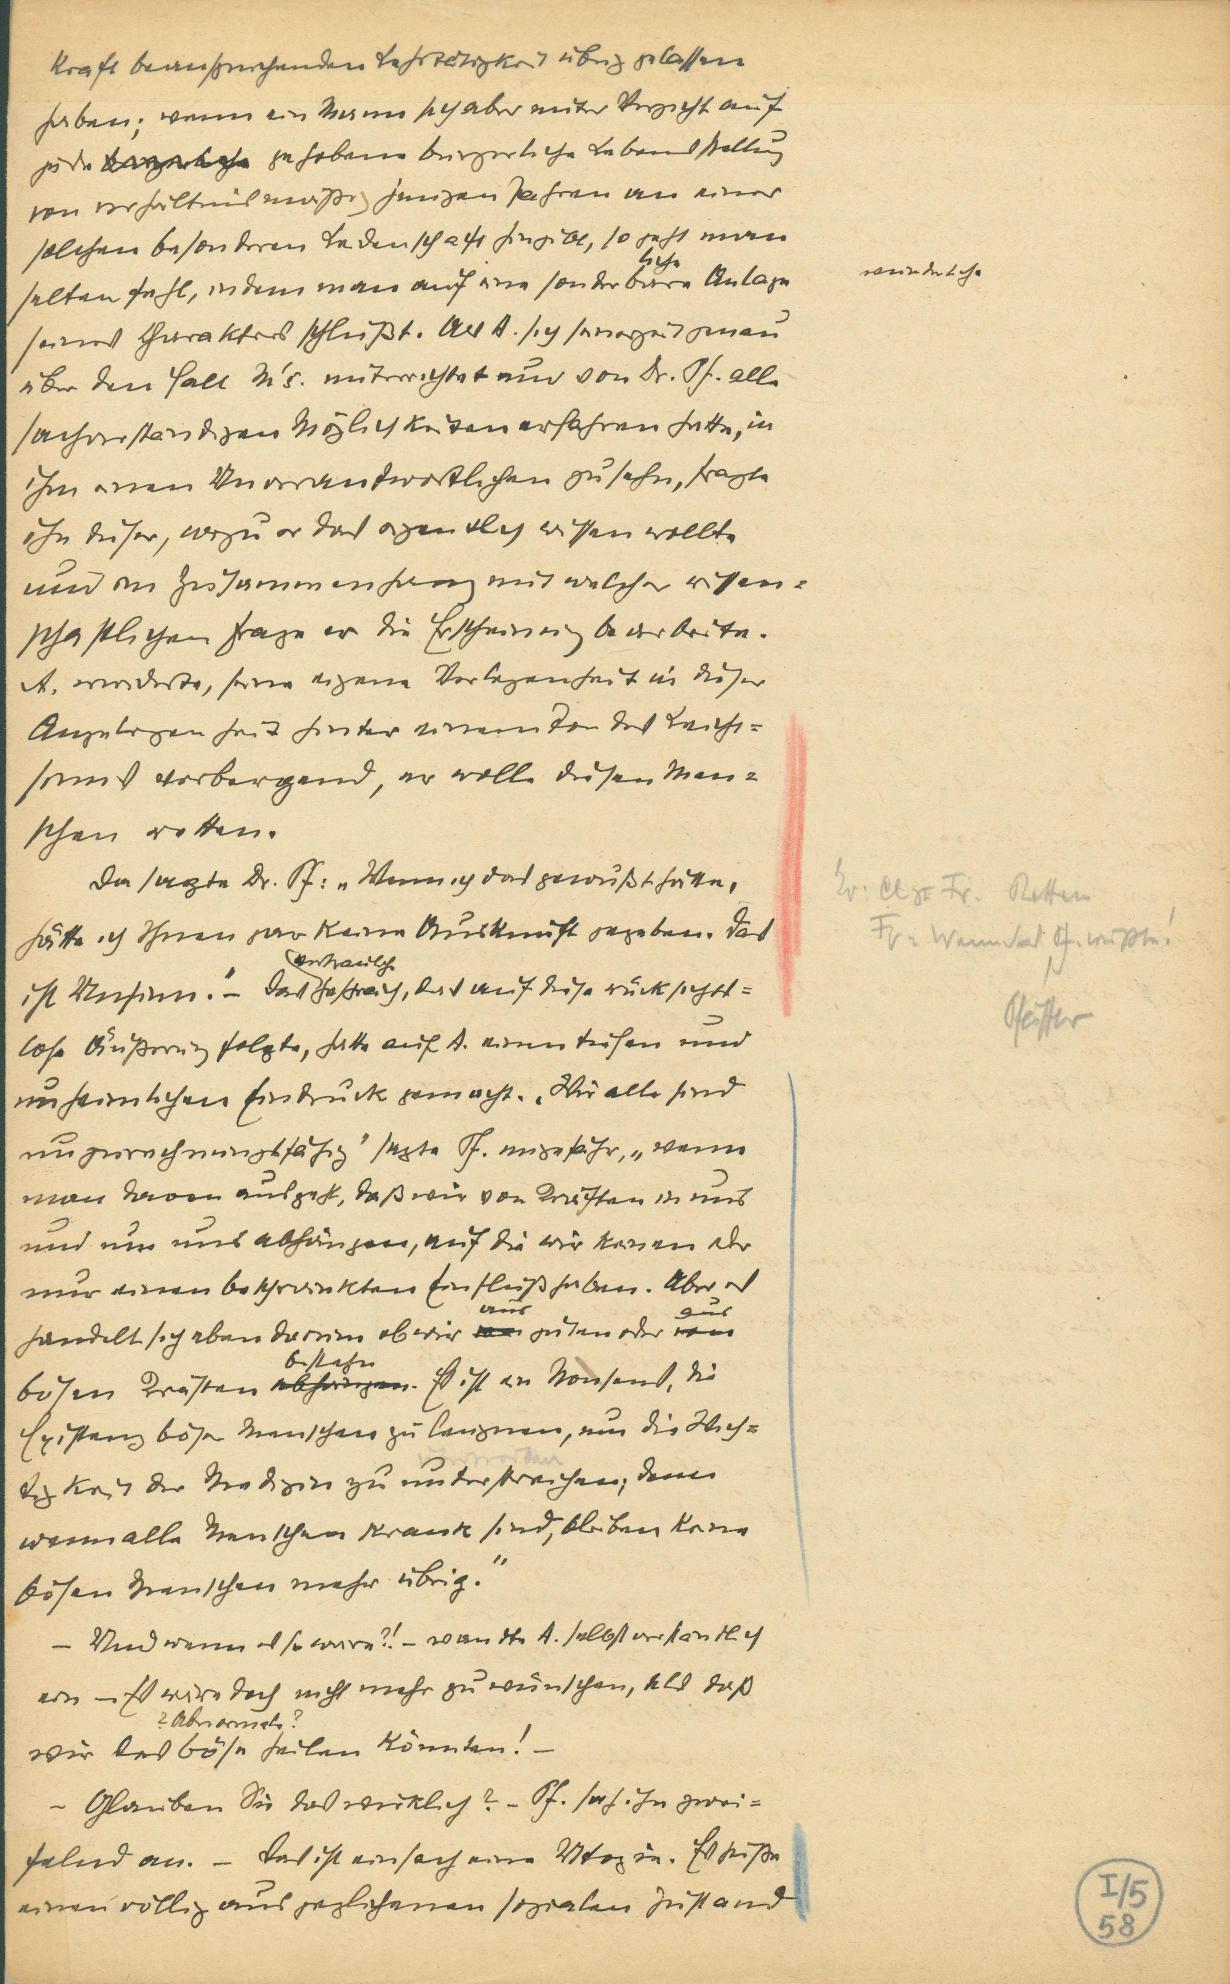 Kraft beanspruchenden Lehrtätigkeit übrig gelassen
haben; wenn ein Mann sich aber unter Verzicht auf
jede bürgerliche gehobene bürgerliche Lebensstellung
von verhältnismäßig jungen Jahren an einer
solchen besonderen Leidenschaft hingibt, so geht man
selten fehl, indem man auf eine sonderbare Anlage
liche
wunderliche
seines Charakters schließt. Als A. sich seinerzeit genau
über den Fall M's. unterrichtet und von Dr. Pf. alle
sachverständigen Möglichkeiten erfahren hatte, in
ihm einen Unverantwortlichen zu sehn, fragte
ihn dieser, wozu er das eigentlich wissen wollte
und im Zusammenhang mit welcher wissen=
schaftlichen Frage er die Erscheinung bearbeite.
A. erwiderte, seine eigene Verlegenheit in dieser
Angelegenheit hinter einem Ton des Leicht=
sinns verbergend, er wolle diesen Men=
schen retten.
Da sagte Dr. Pf: „Wenn ich das gewußt hätte,
hätte ich Ihnen gar keine Auskunft gegeben. Das
Fr. Retten
Fr = Wenn das Pf. wüßte!
Pfeiffer
vertrauliche
ist Unsinn." – Das Gespräch, das auf diese rücksichts=
lose Äußerung folgte, hatte auf A. einen tiefen und
unheimlichen Eindruck gemacht. „Wir alle sind
unzurechnungsfähig" sagte Pf. ungefähr, „wenn
man davon ausgeht, daß wir von Kräften in uns
und um uns abhängen, auf die wir keinen oder
nur einen beschränkten Einfluß haben. Aber es
aus aus
handelt sich eben darum ob wir von guten oder von
bestehn
bösen Kräften abhängen. Es ist ein Nonsens, die
Existenz böser Menschen zu leugnen, um die Wich=
tigkeit der Medizin zu unterstreichen; denn
wenn alle Menschen krank sind, bleiben keine
bösen Menschen mehr übrig."
– Und wenn es so wäre?! – wandte A. selbstverständlich
ein – Es wäre doch nicht mehr zu wünschen, als daß
? Abnormale ?
wir das böse heilen könnten! –
– Glauben Sie das wirklich? – Pf. sah ihn zwei=
felnd an. – Das ist einfach eine Utopie. Es hieße
einen völlig ausgeglichenen sozialen Zustand
I/5
58